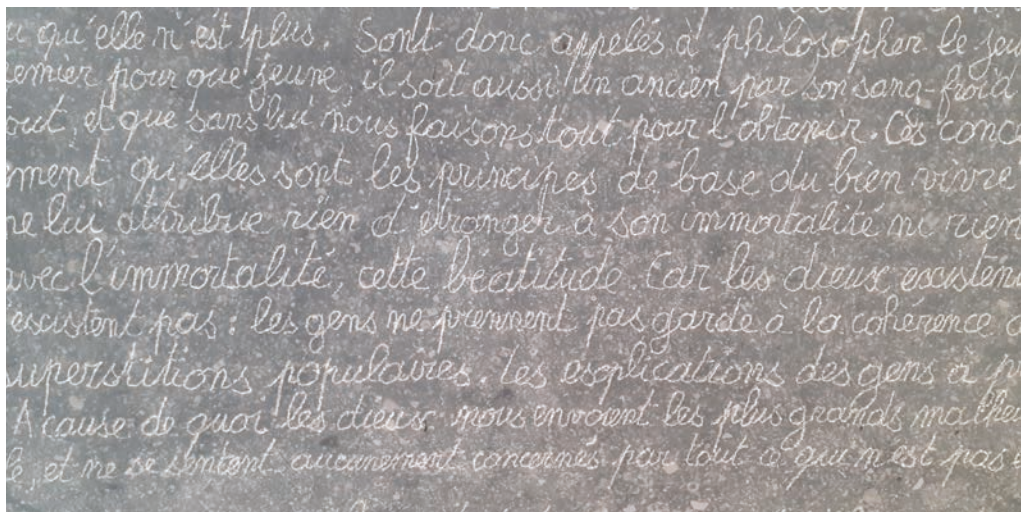 qu'elle n'est plus. Sont donc appelés à philosopher le
pour que jeune, il soit aussi un ancien par son sang-froid
et que sans lui nous faisons tout pour l'obtenir. Ces
qu'elles sont les principes de base du bien vivre
ne lui attribue rien d'étranger à son immortalité ni rien
avec l'immortalité, cette béatitude. Car les dieux
existent pas : les gens ne prennent pas garde à la cohérence
superstitions populaires. Les explications des gens à
A cause de quoi les dieux nous envoient les plus grands
et ne se sentent aucunement concernés par tout ce qui n'est pas